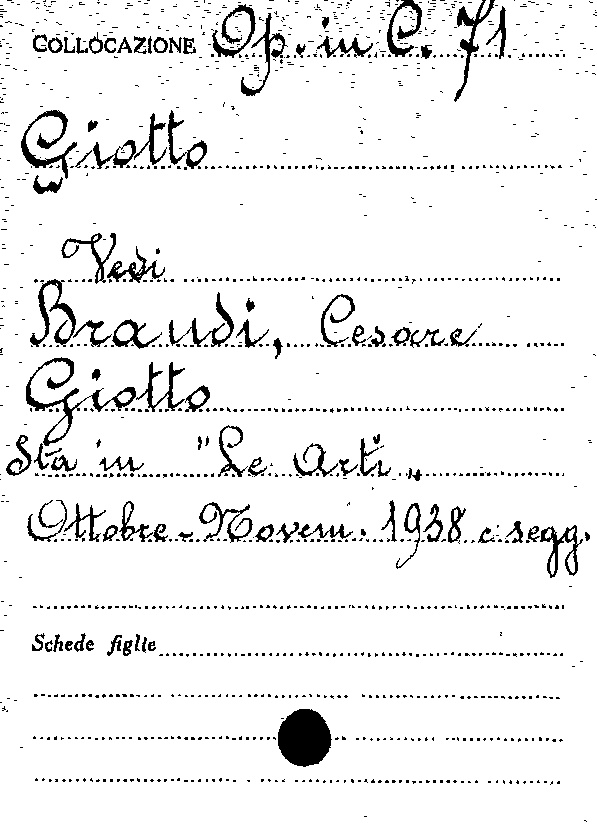 COLLOCAZIONE Op. in C. 71
Giotto
Vedi
Brandi, Cesare
Giotto
Sta in "Le Arti„
Ottobre-Novem. 1938 e segg.
Schede figlie